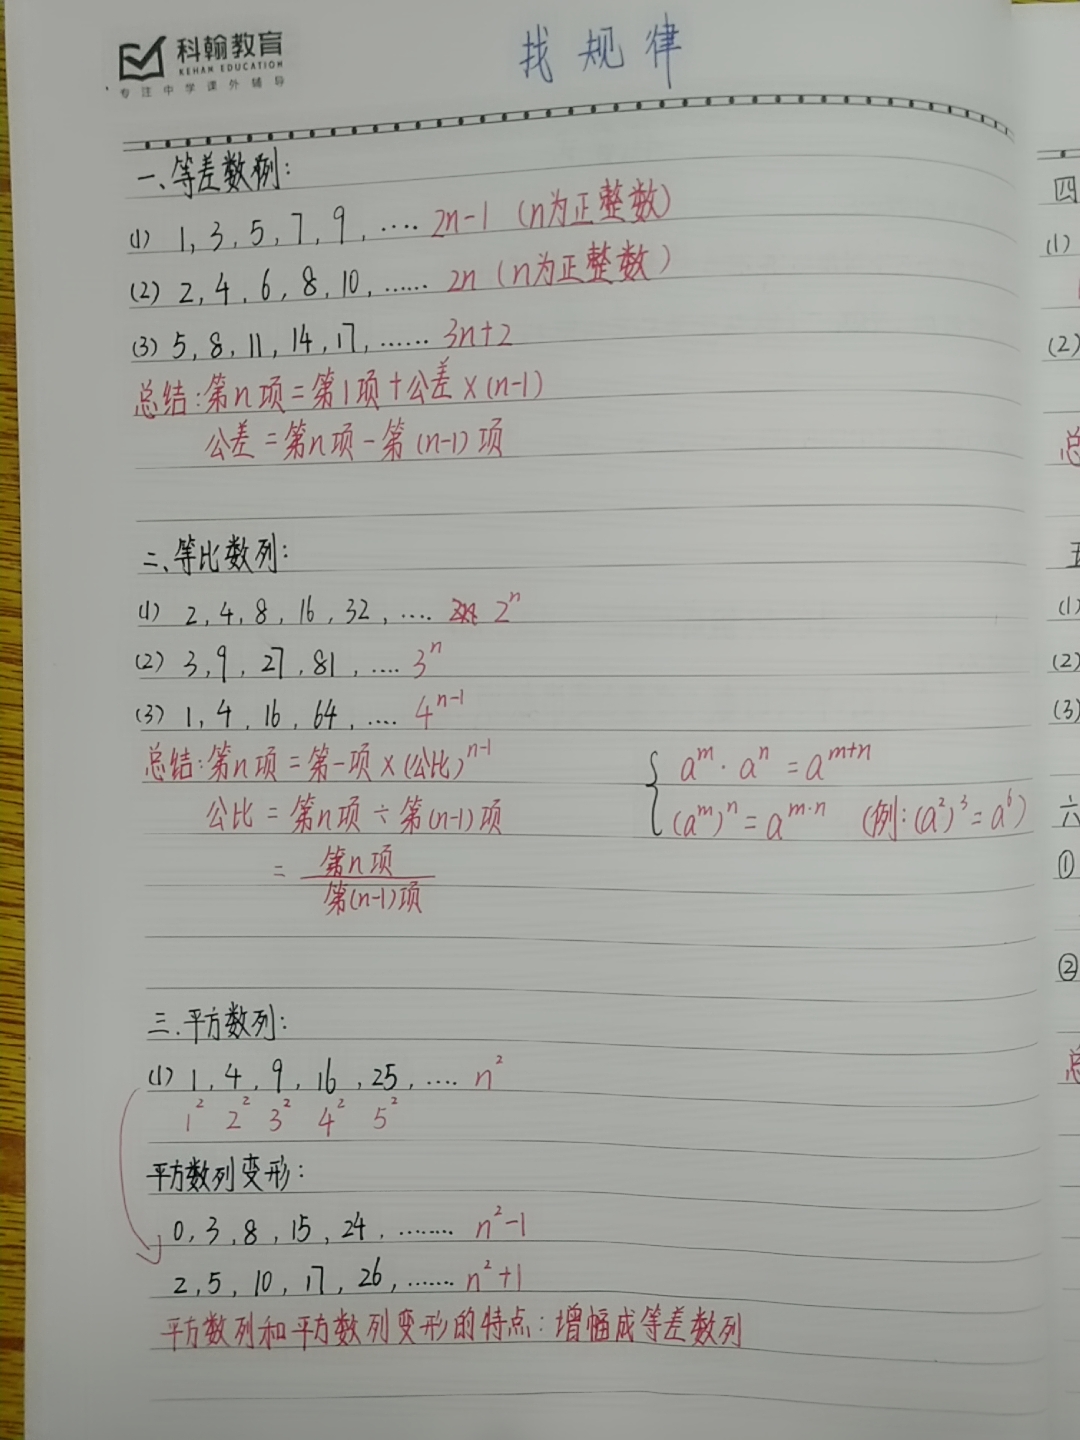 科翰教育
KEHAN EDUCATION
专注中学课外辅导
找规律
一、等差数列:
(1) 1,3,5,7,9,.... 2n-1 (n为正整数)
(2) 2,4,6,8,10,...... 2n (n为正整数)
(3) 5,8,11,14,17,...... 3n+2
总结:第n项=第1项+公差×(n-1)
公差=第n项-第(n-1)项
二、等比数列:
(1) 2,4,8,16,32,.... 2ⁿ
(2) 3,9,27,81,.... 3ⁿ
(3) 1,4,16,64,.... 4ⁿ⁻¹
总结:第n项=第一项×(公比)ⁿ⁻¹
公比=第n项÷第(n-1)项
= 第n项
第(n-1)项
aᵐ·aⁿ=aᵐ⁺ⁿ
(aᵐ)ⁿ=aᵐ·ⁿ (例:(a²)³=a⁶)
三.平方数列:
(1) 1,4,9,16,25,.... n²
1² 2² 3² 4² 5²
平方数列变形:
0,3,8,15,24,........ n²-1
2,5,10,17,26,....... n²+1
平方数列和平方数列变形的特点:增幅成等差数列
四
(1)
(2)
总
五
(1)
(2)
(3)
六
①
②
总